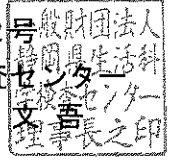 号
センター
文 吾
般財団法人
静岡県生活科
検査センター
理事長之印